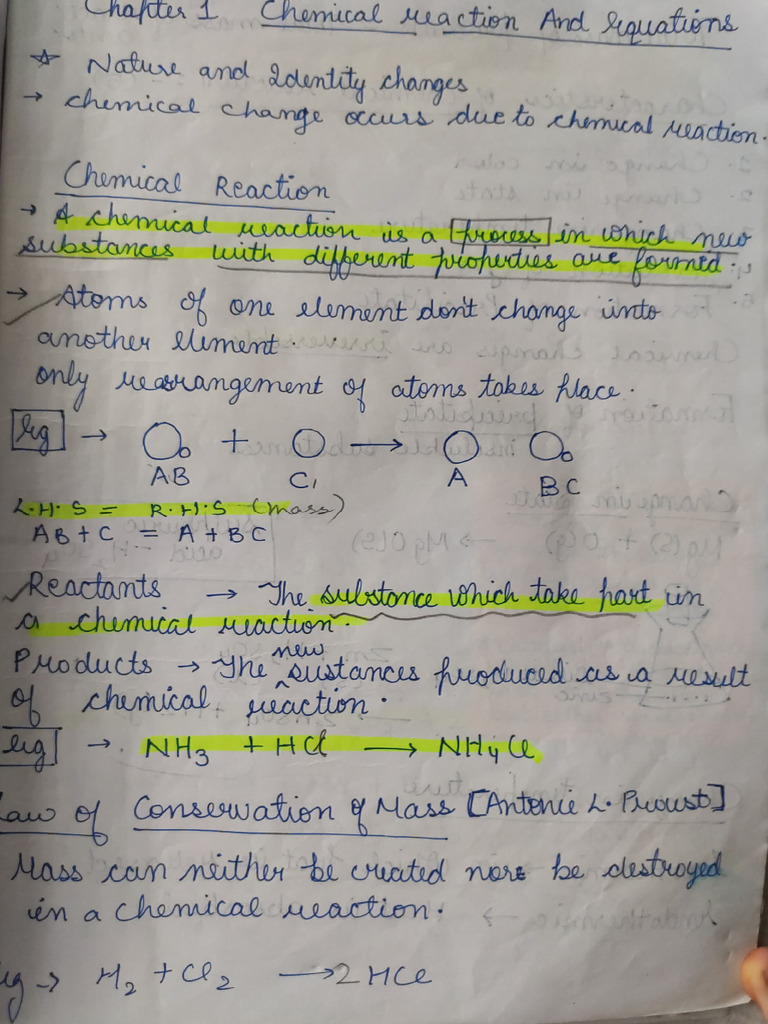 Chapter 1 Chemical reaction And Equations
☆ Nature and Identity changes
→ chemical change occurs due to chemical reaction.
Chemical Reaction
→ A chemical reaction is a process in which new
substances with different properties are formed.
→ Atoms of one element don't change into
another element.
only rearrangement of atoms takes place.
eg → + →
AB C A BC
L.H.S = R.H.S (mass)
AB + C = A + BC
Reactants → The substance which take part in
a chemical reaction.
new
Products → The ^ sustances produced as a result
of chemical reaction.
eg → NH3 + HCl → NH4Cl
Law of Conservation of Mass [Antonie L. Proust]
Mass can neither be created nor be destroyed
in a chemical reaction.
eg → H2 + Cl2 → 2HCl